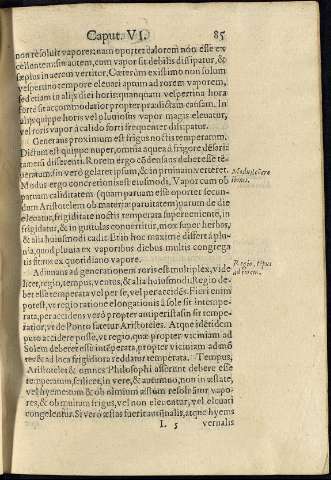 Caput. VI. 85
non resoluit vapore: nam oportet calorem non esse ex
cellentem: sin autem, cum vapor sit debilis dissipatur, &
sæpius in aerem vertitur. Cæterùm existimo non solum
vespertino tempore eleuari aptum ad rorem vaporem,
sed etiam in alijs diei horis: quanquam vespertina hora
forte sit accommodatior propter prædictam causam. In
alijs quippe horis vel pluuiosus vapor magis eleuatur,
vel roris vapor à calido forti frequenter dissipatur.
Generans proximum est frigus noctis temperatum.
Dictum est quippe nuper, omnia aquea à frigore
tamen differenti. Rorem ergo cōdensans debet esse tē-
peratum, sin verò gelaret ipsum, & in pruinam verteret.
Modus ergo concretionis est eiusmodi. Vapor cum ob
paruam caliditatem (quam paruam esse oportet secun-
dum Aristotelem ob materiæ paruitatem) parum de die
eleuatur, frigiditate noctis temperata superueniente, in
frigidatur, & in guttulas conuertitur, mox super herbas,
& alia huiusmodi cadit. Et in hoc maxime differt à plu-
uia, quod pluuia ex vaporibus diebus multis congrega
tis fit: ros ex quotidiano vapore.
Adiuuans ad generationem roris est multiplex, vide
licet, regio, tempus, ventus, & alia huiusmodi. Regio de-
ber esse temperata vel per se, vel per accidēs. Fieri enim
potest, vt regio ratione elongationis à sole sit intempe-
rata, per accidens verò propter antiperistasin sit tempe-
ratior, vt de Ponto fatetur Aristoteles. Atque idētidem
puto accidere posse, vt regio, quæ propter viciniam ad
Solem deberet esse intēperata, propter viciniam ad mō
tes & ad loca frigidiora reddatur temperata. Tempus,
Aristoteles & omnes Philosophi asserunt debere esse
temperatum, scilicet, in vere, & autumno, non in æstate,
vel hyeme: cum & ob nimium æstum resoluātur vapo-
res, & ob multum frigus, vel non eleuentur, vel eleuati
congelentur. Si verò æstas fuerit autūnalis, atque hyems
L 5 vernalis
Modus cōcre
tionis.
Regio, tēpus
ad rorem.